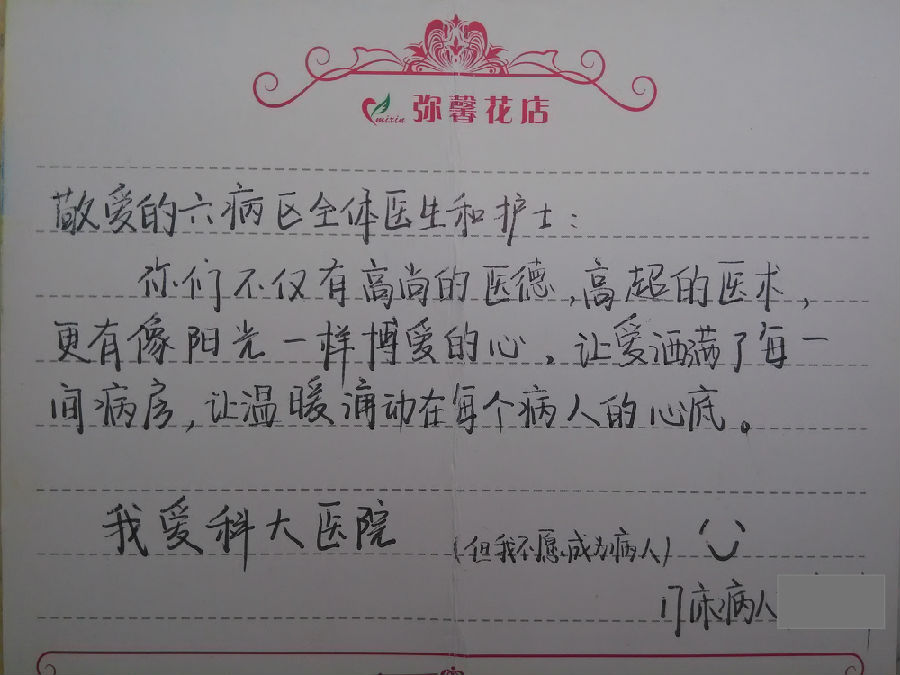 mixin 弥馨花店
敬爱的六病区全体医生和护士：
你们不仅有高尚的医德，高超的医术，
更有像阳光一样博爱的心。让爱洒满了每一
间病房，让温暖涌动在每个病人的心底。
我爱科大医院
（但我不愿成为病人）
17床病人